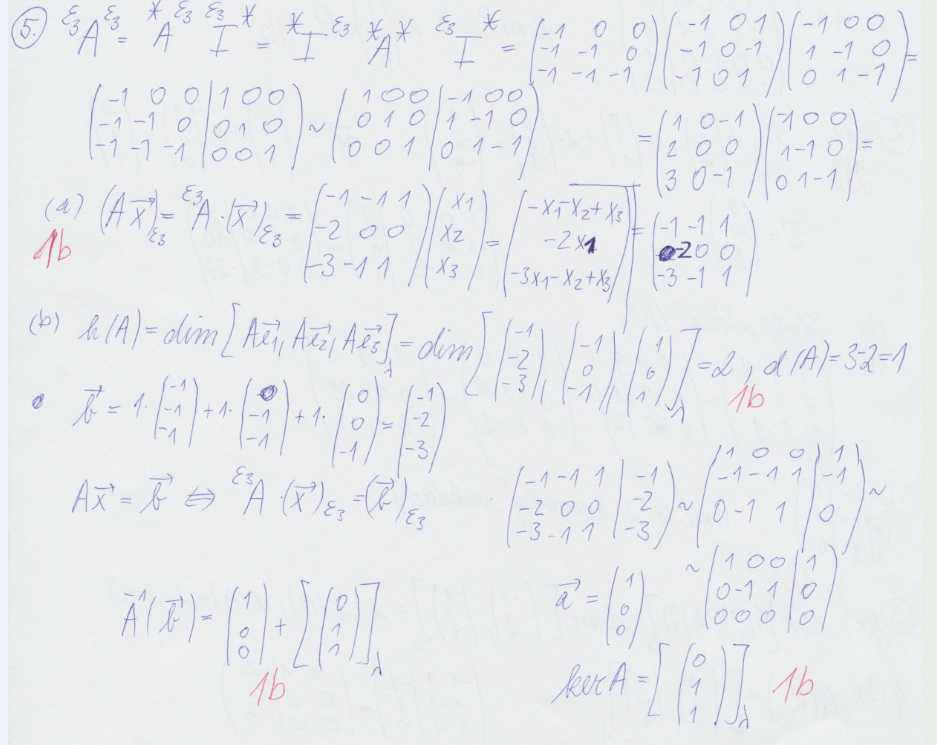 5. ᵋ³Aᵋ³ = ˣAᵋ³ ᵋ³Iˣ = ˣIᵋ³ ˣAˣ ᵋ³Iˣ = (-1 0 0; -1 -1 0; -1 -1 -1) (-1 0 1; -1 0 -1; -1 0 1) (-1 0 0; 1 -1 0; 0 1 -1) =
(-1 0 0 | 1 0 0; -1 -1 0 | 0 1 0; -1 -1 -1 | 0 0 1) ~ (1 0 0 | -1 0 0; 0 1 0 | 1 -1 0; 0 0 1 | 0 1 -1)
= (1 0 -1; 2 0 0; 3 0 -1) (-1 0 0; 1 -1 0; 0 1 -1) =
(a) (Ax⃗)ε₃ = ᵋ³A · (x⃗)ε₃ = (-1 -1 1; -2 0 0; -3 -1 1) (x1; x2; x3) = (-x1-x2+x3; -2x1; -3x1-x2+x3)
= (-1 -1 1; -2 0 0; -3 -1 1)
1b
(b) h(A) = dim [Ae⃗1, Ae⃗2, Ae⃗3]λ = dim [(-1; -2; -3), (-1; 0; -1), (1; 0; 1)]λ = 2, d(A) = 3-2 = 1
1b
• b⃗ = 1·(-1; -1; -1) + 1·(0; -1; -1) + 1·(0; 0; -1) = (-1; -2; -3)
Ax⃗ = b⃗ ⇔ ᵋ³A · (x⃗)ε₃ = (b⃗)ε₃ (-1 -1 1 | -1; -2 0 0 | -2; -3 -1 1 | -3) ~ (1 0 0 | 1; -1 -1 1 | -1; 0 -1 1 | 0) ~
~ (1 0 0 | 1; 0 -1 1 | 0; 0 0 0 | 0)
A⁻¹(b⃗) = (1; 0; 0) + [(0; 1; 1)]λ a⃗ = (1; 0; 0)
1b
ker A = [(0; 1; 1)]λ 1b